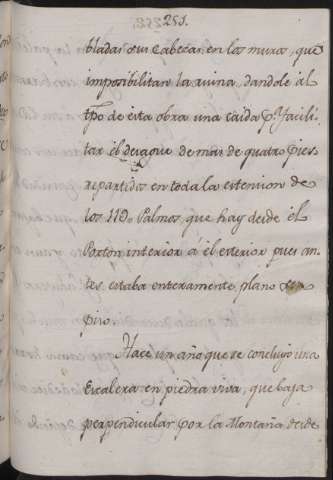 253.
bladas sus Cabezas en los muros, que
imposibilitan la ruina, dandole al
tpo de esta obra una caida pa. facili-
tar el desague de mas de quatro pies
repartidos en toda la estension de
los 110. Palmos que hay desde el
Porton interior á el exterior pues an-
tes estaba enteramente plano
piso.
Hace un año que se concluyó una
Escalera en piedra viva, que baja
perpendicular por la Montaña desde